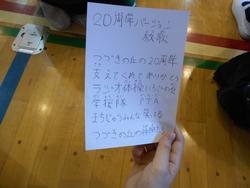 20周年バージョン
校歌
つづきの丘の20周年
支えてくれてありがとう
ラジオ体操いちじの会
学援隊 PTA
まちじゅうみんな
つづきの丘の